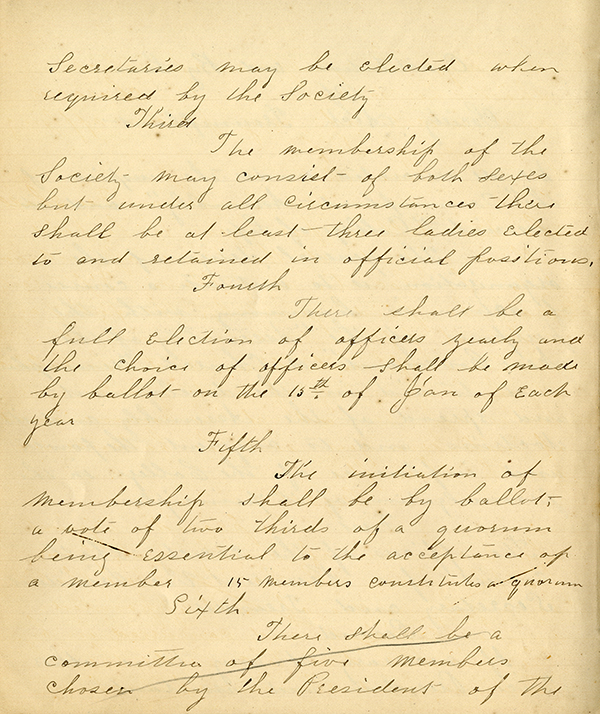 Secretaries may be elected when
required by the Society
Third
The membership of the
Society may consist of both sexes
but under all circumstances there
shall be at least three ladies elected
to and retained in official positions.
Fourth
There shall be a
full election of officers yearly and
the choice of officers shall be made
by ballot on the 15th of Jan of each
year
Fifth
The initiation of
membership shall be by ballot,
a vote of two thirds of a quorum
being essential to the acceptance of
a member 15 members constitutes a quorum
Sixth
There shall be a
committee of five members
chosen by the President of the